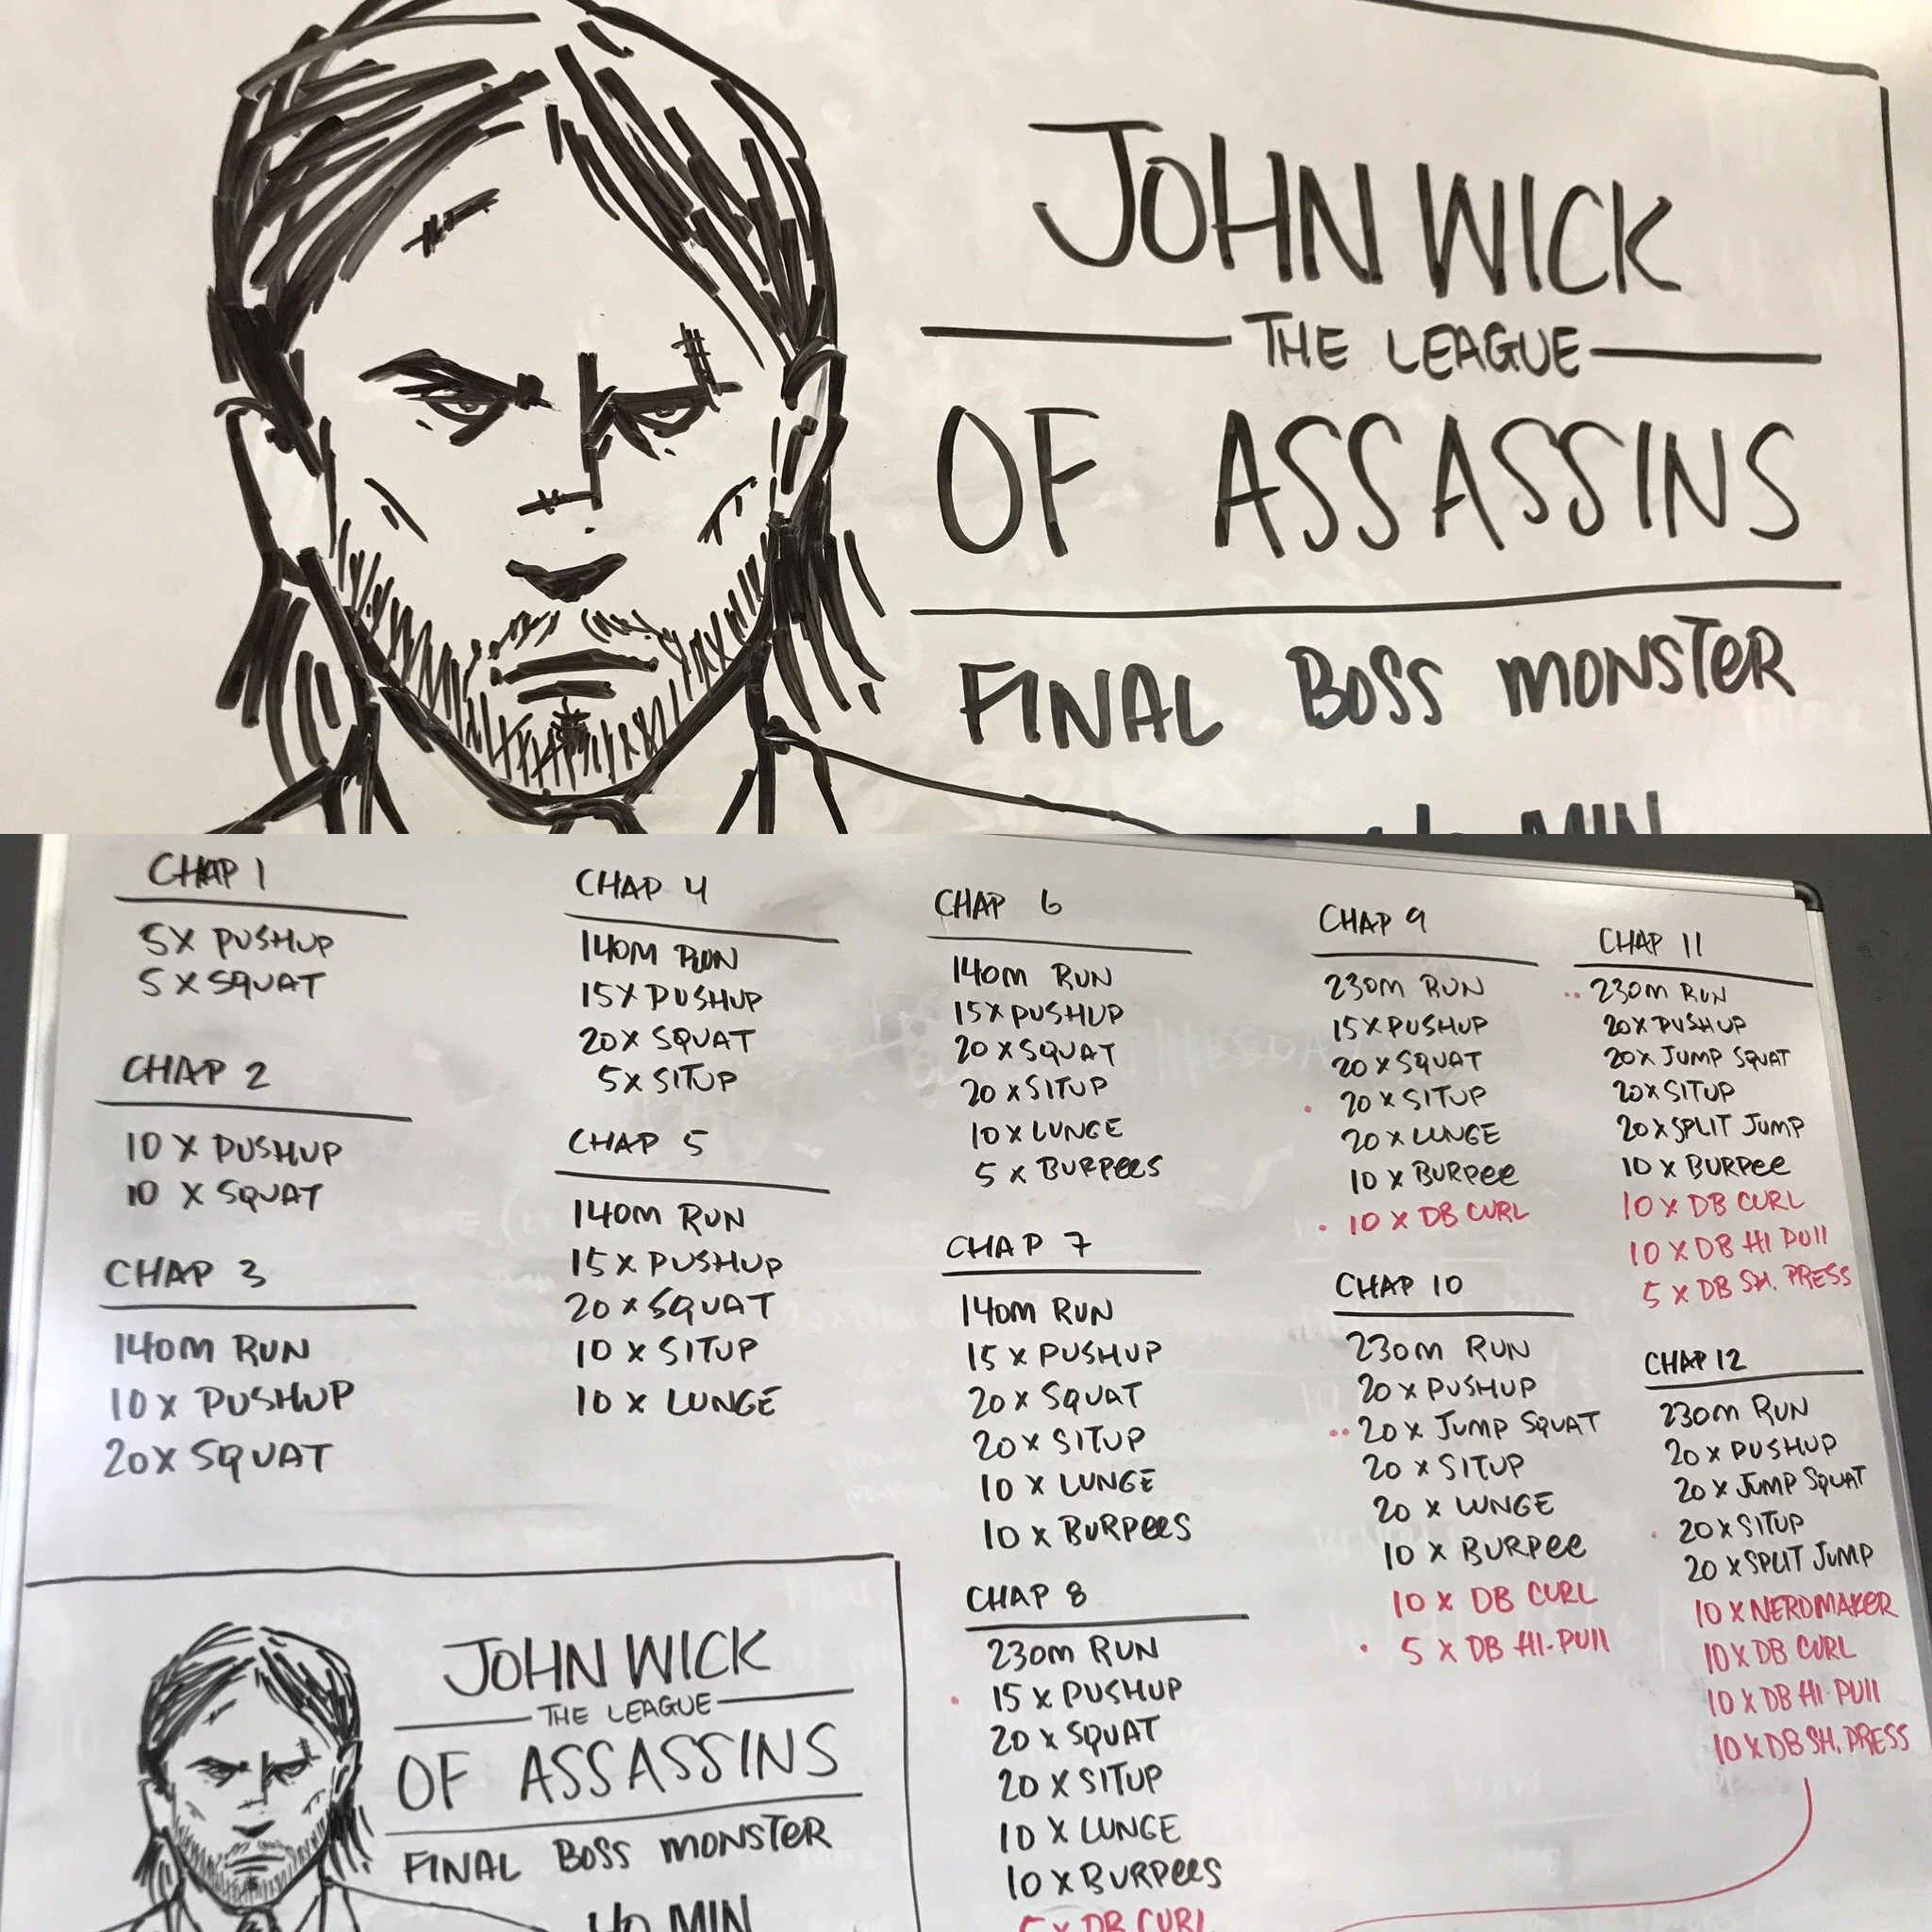 JOHN WICK
THE LEAGUE
OF ASSASSINS
FINAL BOSS MONSTER
40 MIN
CHAP 1
5X PUSHUP
5 X SQUAT
CHAP 2
10 X PUSHUP
10 X SQUAT
CHAP 3
140M RUN
10 X PUSHUP
20X SQUAT
CHAP 4
140M RUN
15X PUSHUP
20X SQUAT
5X SITUP
CHAP 5
140M RUN
15 X PUSHUP
20 X SQUAT
10 X SITUP
10 X LUNGE
CHAP 6
140M RUN
15X PUSHUP
20 X SQUAT
20 X SITUP
10 X LUNGE
5 X BURPEES
CHAP 7
140M RUN
15 X PUSHUP
20 X SQUAT
20 X SITUP
10 X LUNGE
10 X BURPEES
CHAP 8
230M RUN
15 X PUSHUP
20 X SQUAT
20 X SITUP
10 X LUNGE
10 X BURPEES
5 X DB CURL
CHAP 9
230M RUN
15 X PUSHUP
20 X SQUAT
20 X SITUP
20 X LUNGE
10 X BURPEE
10 X DB CURL
CHAP 10
230M RUN
20 X PUSHUP
20 X JUMP SQUAT
20 X SITUP
20 X LUNGE
10 X BURPEE
10 X DB CURL
5 X DB HI-PULL
CHAP 11
230M RUN
20X PUSHUP
20X JUMP SQUAT
20X SITUP
20X SPLIT JUMP
10 X BURPEE
10 X DB CURL
10 X DB HI PULL
5 X DB SH. PRESS
CHAP 12
230M RUN
20 X PUSHUP
20 X JUMP SQUAT
20 X SITUP
20 X SPLIT JUMP
10 X NERDMAKER
10 X DB CURL
10 X DB HI-PULL
10 X DB SH. PRESS
JOHN WICK
THE LEAGUE
OF ASSASSINS
FINAL BOSS MONSTER
40 MIN